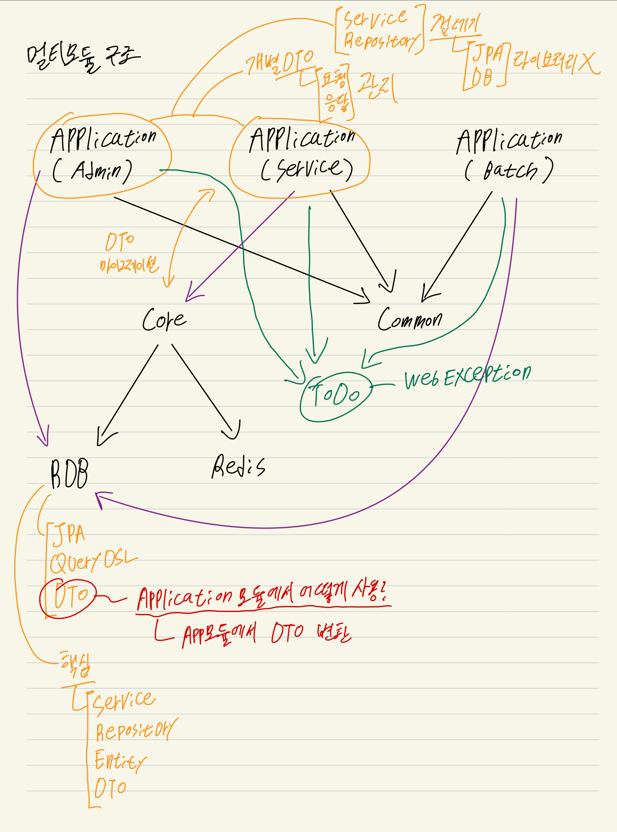 멀티모듈 구조
Service
Repository
껍데기
JPA
DB
라이브러리 X
개별 DTO
요청
응답
관리
Application
(Admin)
Application
(Service)
Application
(Batch)
DTO
마이그레이션
Core
Common
ToDo
Web Exception
RDB
Redis
JPA
Query DSL
DTO
Application 모듈에서 어떻게 사용?
App모듈에서 DTO 변환
핵심
Service
Repository
Entity
DTO